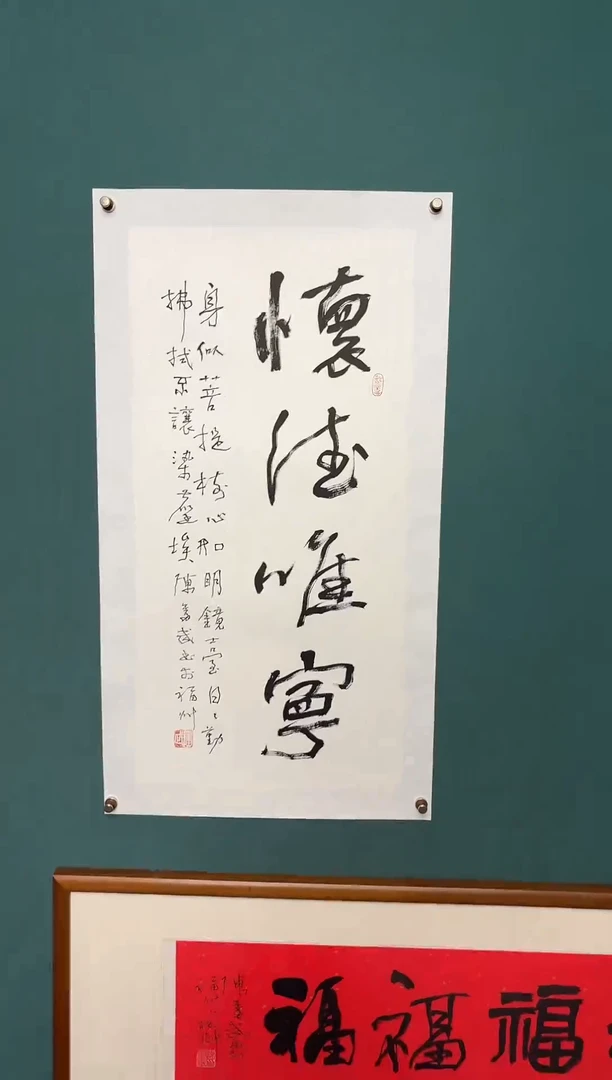 懷德唯寧
身似菩提樹心如明鏡臺日日勤
拂拭不讓染塵埃陳
書於福州
福福福